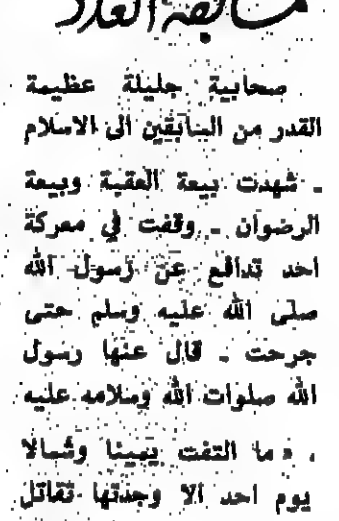 مسابقة العدد
صحابية جليلة عظيمة
القدر من السابقين الى الاسلام
ـ شهدت بيعة العقبة وبيعة
الرضوان ـ وقفت في معركة
احد تدافع عن رسول الله
صلى الله عليه وسلم حتى
جرحت ـ قال عنها رسول
الله صلوات الله وسلامه عليه
، « ما التفت يمينا وشمالا
يوم احد الا وجدتها تقاتل